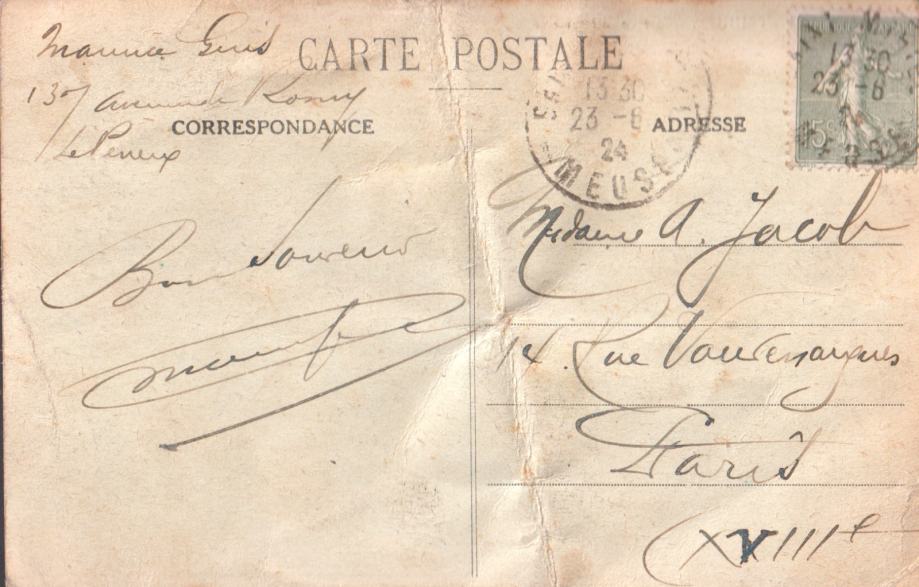 CARTE POSTALE
Maurice
137 avenue de Rosny
Le Perreux
CORRESPONDANCE
Bon Souvenir
13 30
23 - 6
24
MEUSE
ADRESSE
13 30
23 - 6
24
15c
Madame A. Jacob
14. Rue Vauvenargues
Paris
XVIIIe